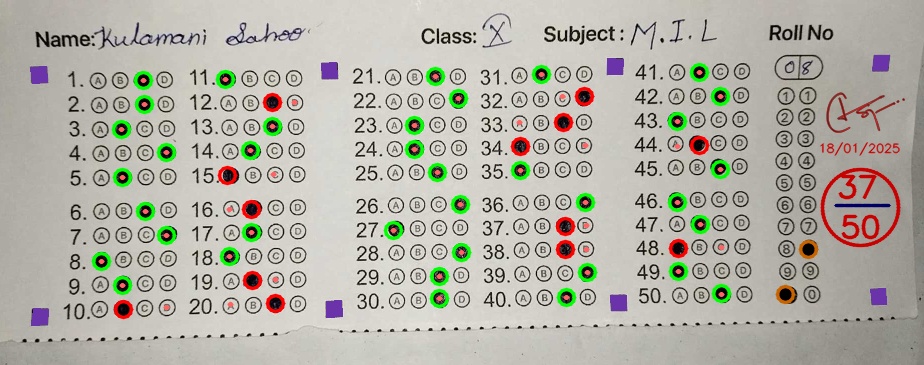 Name: Kulamani Sahoo Class: X Subject: M.I.L Roll No
08
1. A B D
2. A B D
3. A C D
4. A B C
5. A C D
6. A B D
7. A B C
8. B C D
9. A C D
10. A C D
11. B C D
12. A B D
13. A B D
14. A C D
15. B C D
16. A C D
17. A C D
18. B C D
19. A C D
20. A B D
21. A B D
22. A B C
23. A C D
24. A C D
25. A B D
26. A B C
27. B C D
28. A B C
29. A B D
30. A B D
31. A C D
32. A B C
33. A B D
34. B C D
35. B C D
36. A B C
37. A B D
38. A B D
39. A B C
40. A B D
41. A C D
42. A B D
43. B C D
44. A C D
45. A B D
46. B C D
47. A C D
48. B C D
49. B C D
50. A B D
1 1
2 2
3 3
4 4
5 5
6 6
7 7
8
9 9
0
18/01/2025
37
50